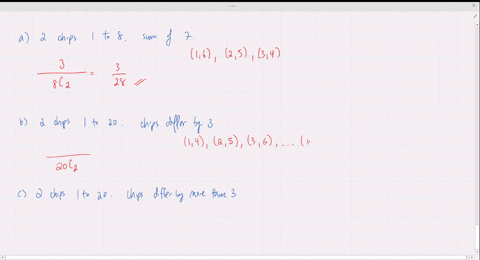 a) 2 chips 1 to 8. sum of 7
(1,6), (2,5), (3,4)
3/8C2 = 3/28
b) 2 chips 1 to 20. chips differ by 3
(1,4), (2,5), (3,6), .... (1
/20C2
c) 2 chips 1 to 20. chips differ by more than 3